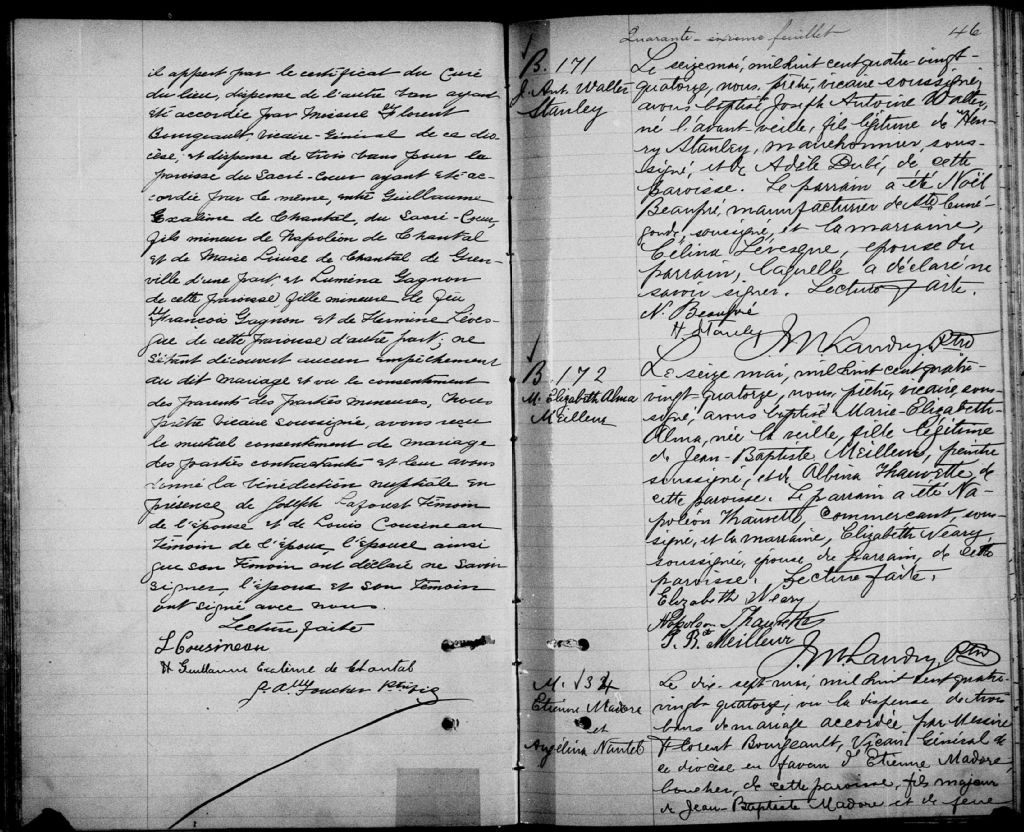 il appert par le certificat du Curé
du lieu, dispense de l'autre ban ayant
été accordée par Messire Florent
Bourgeault, Vicaire-Général de ce dio-
cèse, et dispense de trois bans pour la
paroisse du Sacré-Coeur ayant été ac-
cordée par le même, entre Guillaume
Exalime de Chantal, du Sacré-Coeur,
fils mineur de Napoléon de Chantal
et de Marie Louise de Chantal de Gren-
ville d'une part, et Lumina Gagnon
de cette paroisse, fille mineure de feu
François Gagnon et de Hermine Léves-
que de cette paroisse d'autre part; ne
s'étant découvert aucun empêchement
au dit mariage et vu le consentement
des parents des parties mineures, Nous
prêtre vicaire soussigné, avons reçu
le mutuel consentement de mariage
des parties contractantes et leur avons
donné la bénédiction nuptiale en
présence de Joseph Laforest témoin
de l'épouse et de Louis Cousineau
témoin de l'époux, l'épouse ainsi
que son témoin ont déclaré ne savoir
signer, l'époux et son témoin
ont signé avec nous.
Lecture faite
L Cousineau
Guillaume Exalime de Chantal
Foucher Ptre
Quarante-sixième feuillet 46
B. 171
J. Ant. Walter
Stanley
Le seize mai, mil huit cent quatre-vingt-
quatorze, nous, prêtre, vicaire soussigné,
avons baptisé Joseph Antoine Walter,
né l'avant-veille, fils légitime de Hen-
ry Stanley, manchonnier, sous-
signé, et de Adèle Dubé, de cette
paroisse. Le parrain a été Noël
Beaupré, manufacturier de Ste Cuné-
gonde, soussigné, et la marraine,
Célina Lévesque, épouse du
parrain, laquelle a déclaré ne
savoir signer. Lecture faite.
N. Beaupré
H. Stanley
J M Landry Ptre
B. 172
M. Elizabeth Alma
Meilleur
Le seize mai, mil huit cent quatre-
vingt quatorze, nous, prêtre, vicaire, sous-
signé, avons baptisé Marie-Elizabeth-
Alma, née la veille, fille légitime
de Jean-Baptiste Meilleur, peintre
soussigné, et de Albina Thauvette, de
cette paroisse. Le parrain a été Na-
poléon Thauvette, commerçant, sous-
signé, et la marraine, Elizabeth Neary,
soussignée, épouse du parrain, de cette
paroisse. Lecture faite.
Elizabeth Neary
Napoléon Thauvette
J. Bte Meilleur
J. M Landry Ptre
M. 34
Etienne Madore
et
Angélina Nantel
Le dix-sept mai, mil huit cent quatre-
vingt quatorze, vu la dispense de trois
bans de mariage accordée par Messire
Florent Bourgeault, Vicaire Général de
ce diocèse en faveur d'Etienne Madore,
boucher, de cette paroisse, fils majeur
de Jean-Baptiste Madore et de feue